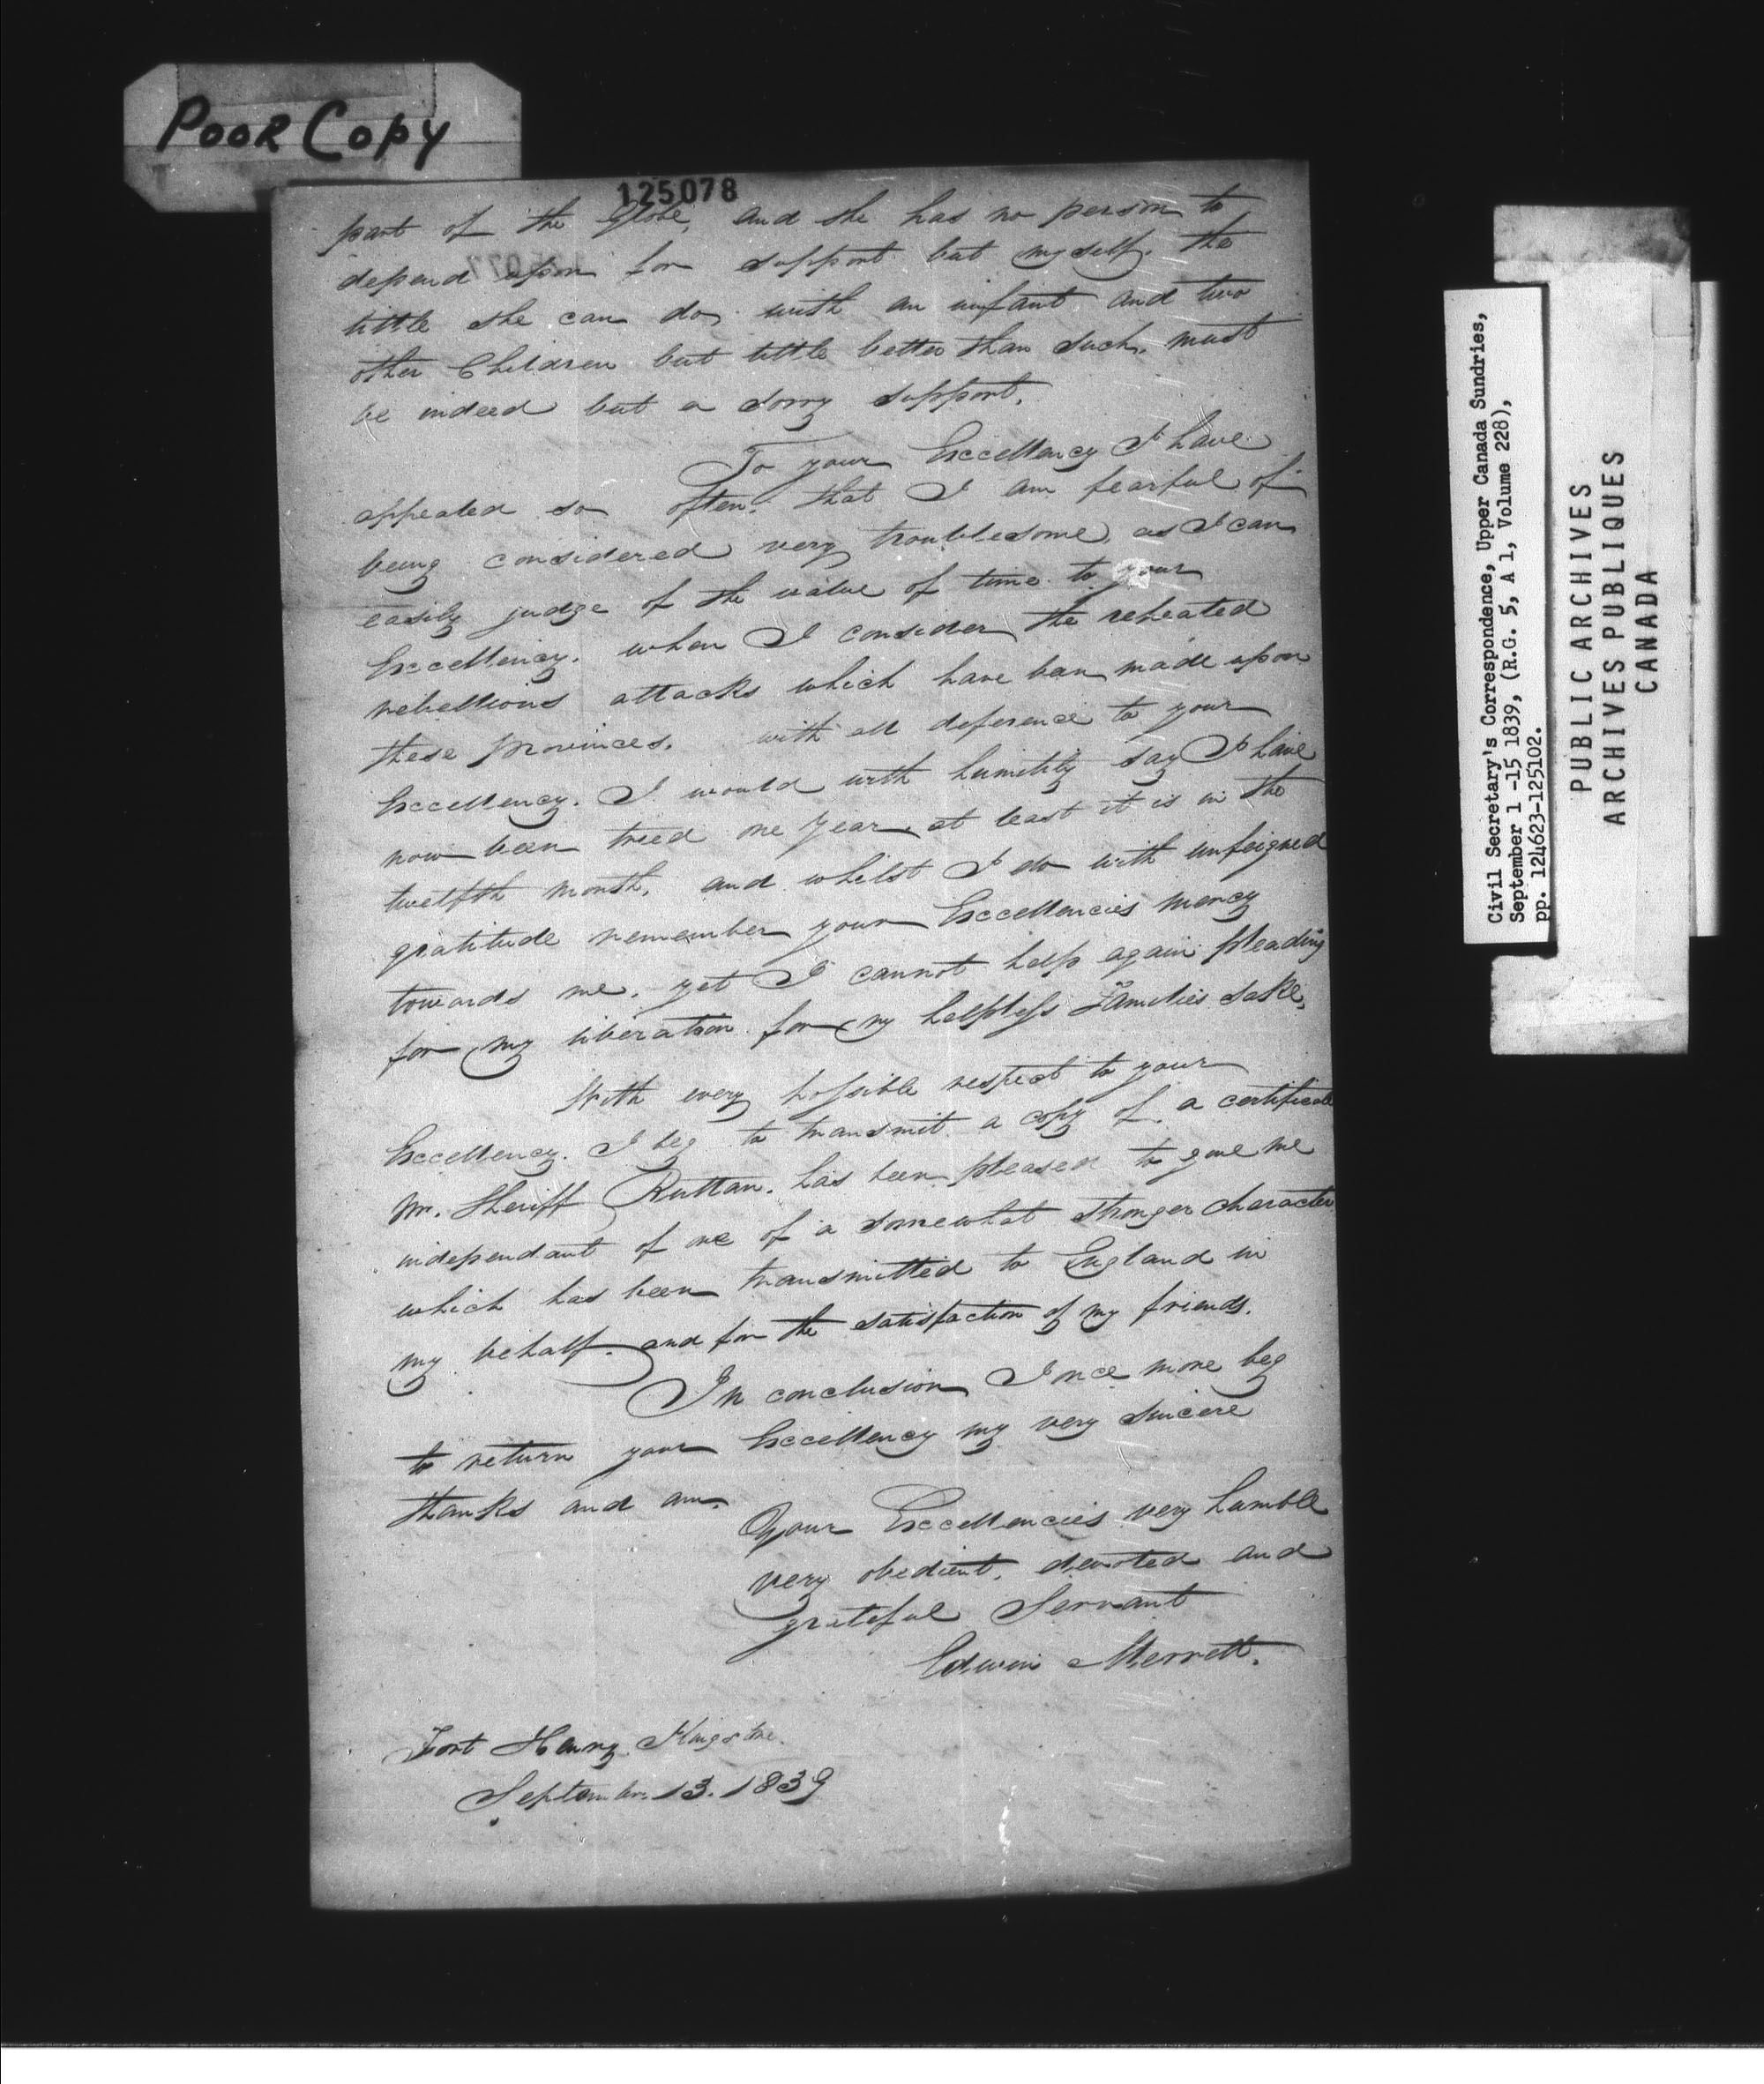 POOR COPY
125078
part of the Globe, and she has no person to
depend upon for support but myself. the
little she can do, with an infant and two
other Children but little better than such, must
be indeed but a sorry support.
To your Excellency I have
appealed so often, that I am fearful of
being considered very troublesome, as I can
easily judge of the value of time to your
Excellency. when I consider the repeated
rebellious attacks which have been made upon
these Provinces. with all deference to your
Excellency. I would with humility say I have
now been tried one year, at least it is in the
twelfth month, and whilst I do with unfeigned
gratitude remember your Excellencies mercy
towards me. yet I cannot help again pleading
for my liberation for my helpless Families sake,
With every possible respect to your
Excellency. I beg to transmit a copy of a certificate
Mr. Sheriff Ruttan. has been pleased to give me
independant of one of a somewhat stronger character
which has been transmitted to England in
my behalf. and for the satisfaction of my friends.
In conclusion I once more beg
to return your Excellency my very sincere
thanks and am.
Your Excellencies very humble
very obedient, devoted and
grateful Servant
Edwin Merrett.
Fort Henry. Kingston.
September. 13. 1839
Civil Secretary's Correspondence, Upper Canada Sundries,
September 1 -15 1839, (R.G. 5, A 1, Volume 228),
pp. 124623-125102.
PUBLIC ARCHIVES
ARCHIVES PUBLIQUES
CANADA